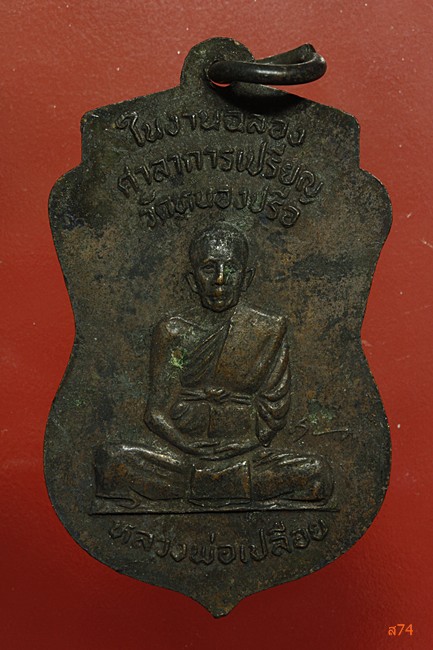 ในงานฉลอง
ศาลาการเปรียญ
วัดหนองปรือ
หลวงพ่อเปลื้อย
ส74